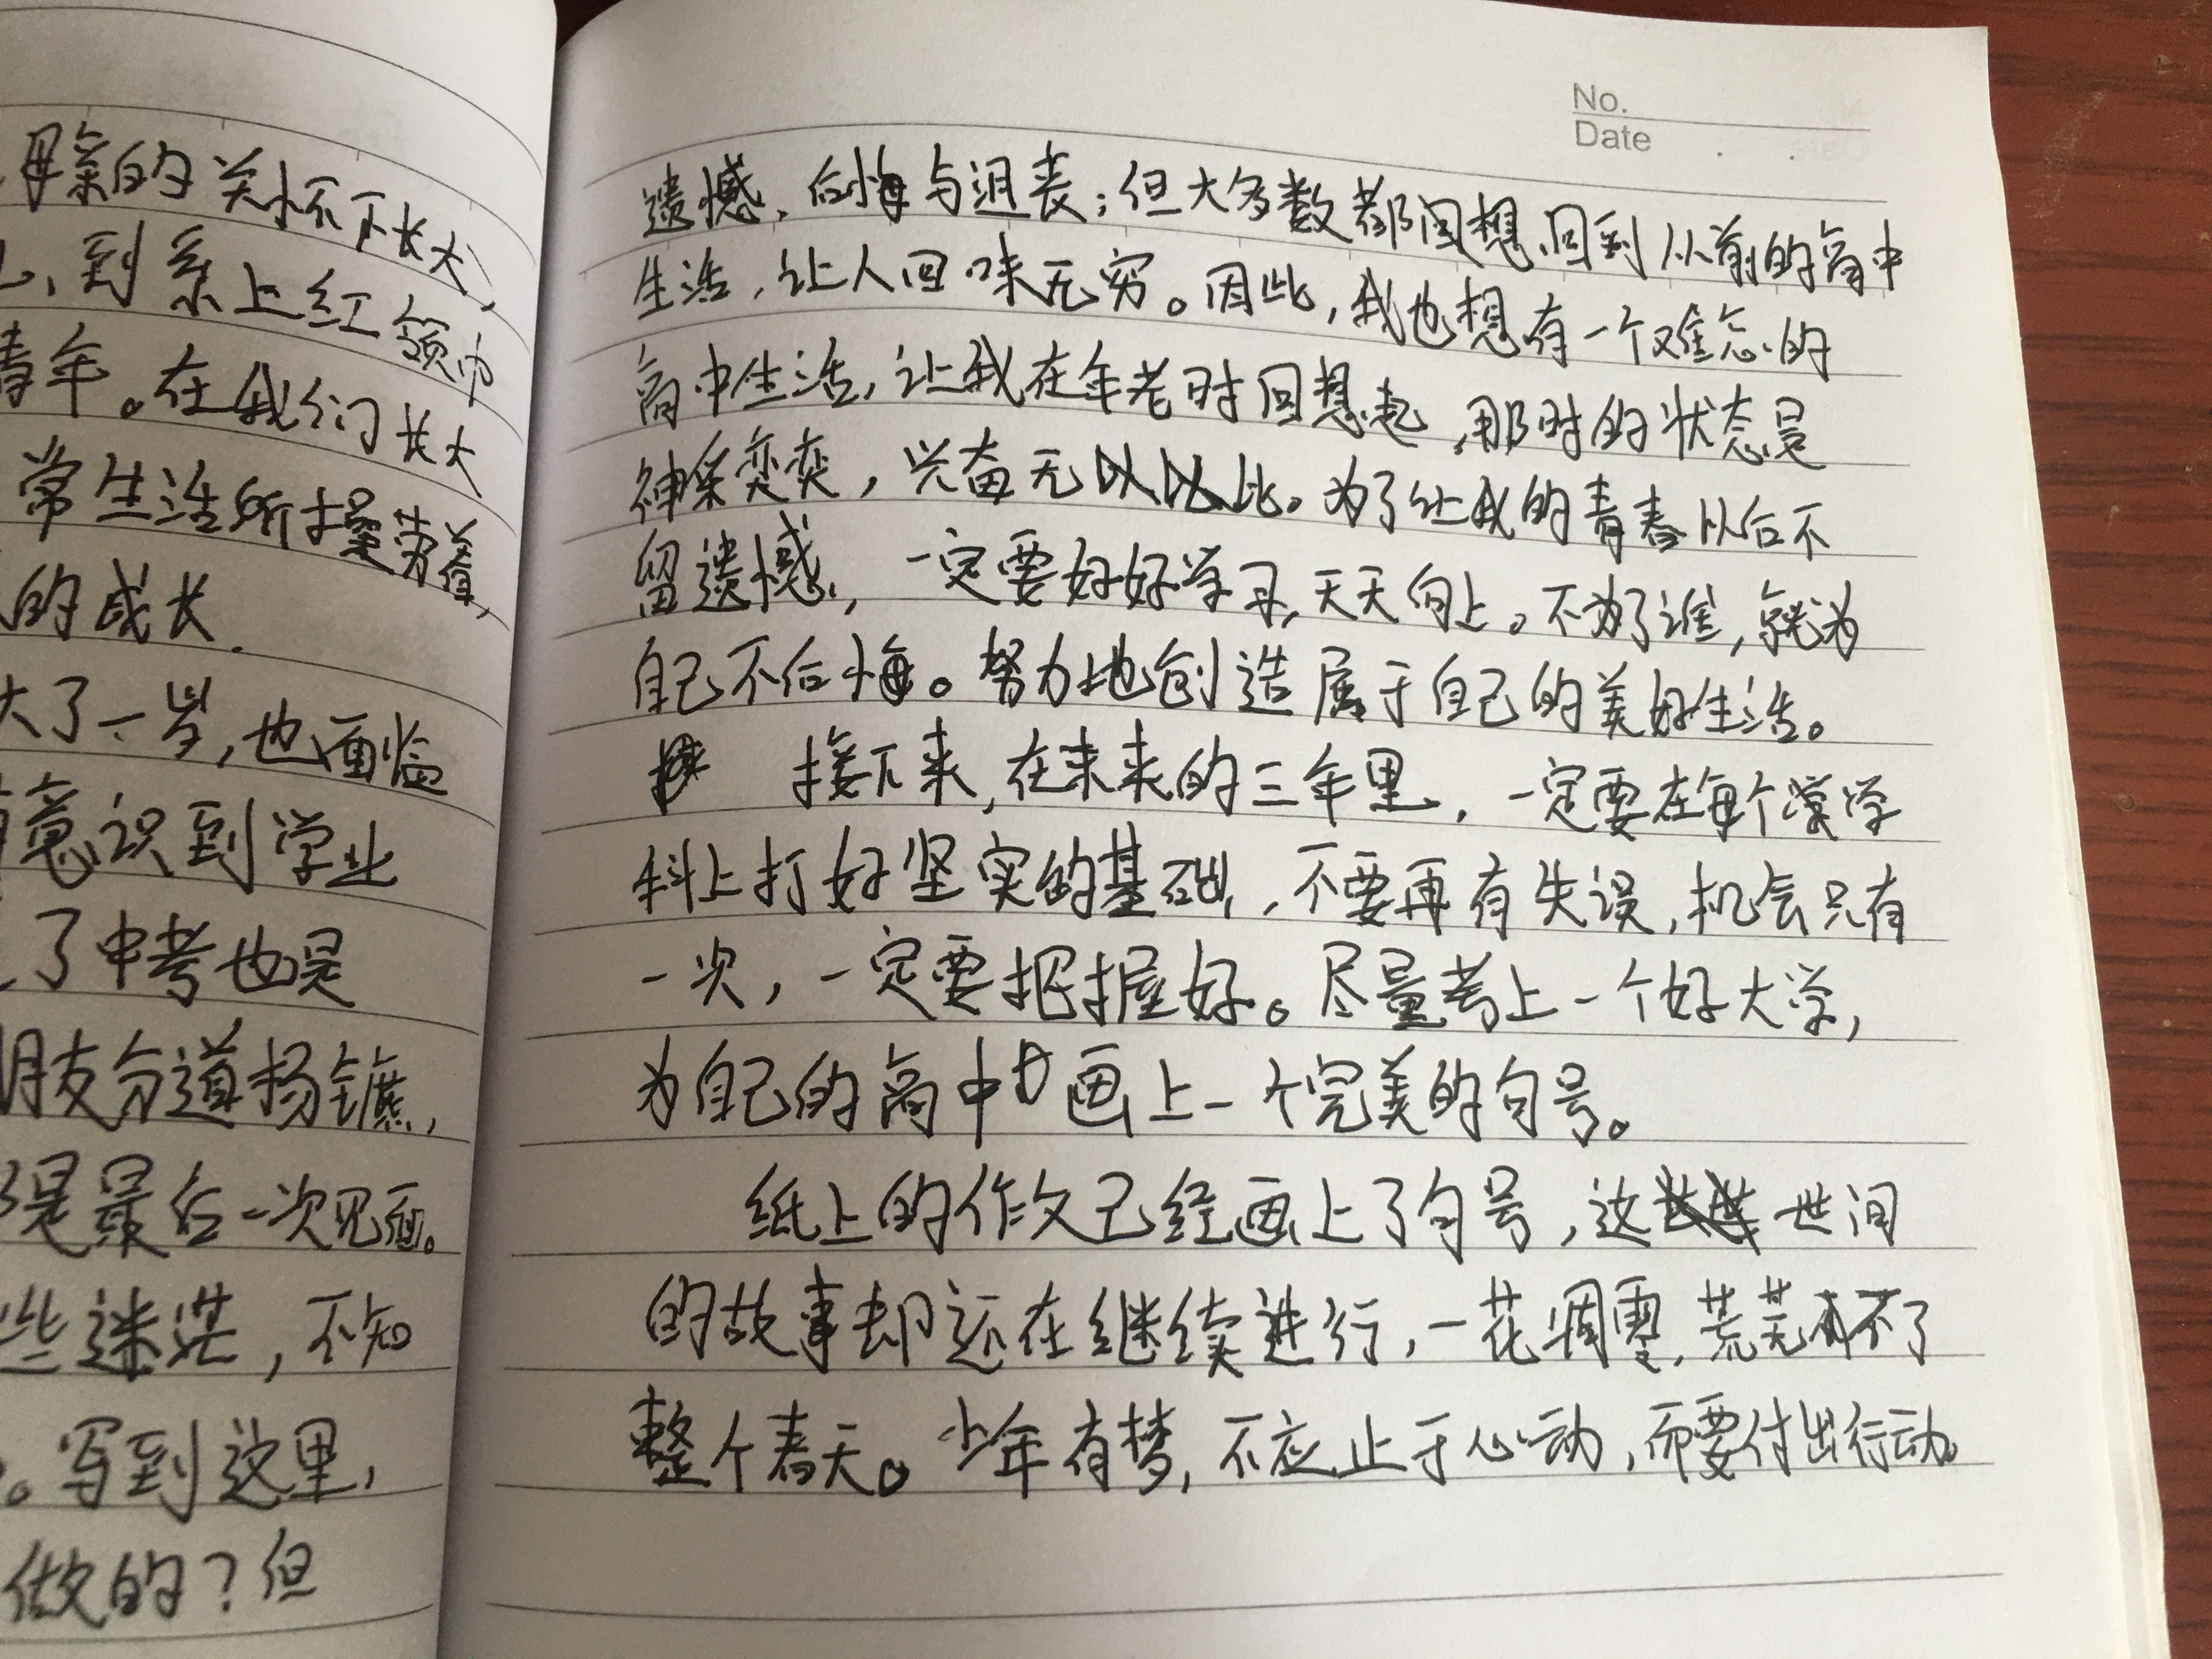 母亲的关怀下长大,
到系上红领巾
青年。在我们长大
常生活所操劳着,
的成长.
大了一岁,也面临
意识到学业
了中考也是
朋友分道扬镳,
是最后一次见面。
些迷茫,不知
。写到这里,
做的?但
No.
Date
遗憾、后悔与沮丧;但大多数都回想回到从前的高中
生活,让人回味无穷。因此,我也想有一个难忘的
高中生活,让我在年老时回想起,那时的状态是
神采奕奕,兴奋无比。为了让我的青春以后不
留遗憾,一定要好好学习,天天向上。不为了谁,就为
自己不后悔。努力地创造属于自己的美好生活。
接下来,在未来的三年里,一定要在每个学
科上打好坚实的基础,不要再有失误,机会只有
一次,一定要把握好。尽量考上一个好大学,
为自己的高中画上一个完美的句号。
纸上的作文已经画上了句号,这世间
的故事却还在继续进行,一花凋零,荒芜不了
整个春天。少年有梦,不应止于心动,而要付出行动。